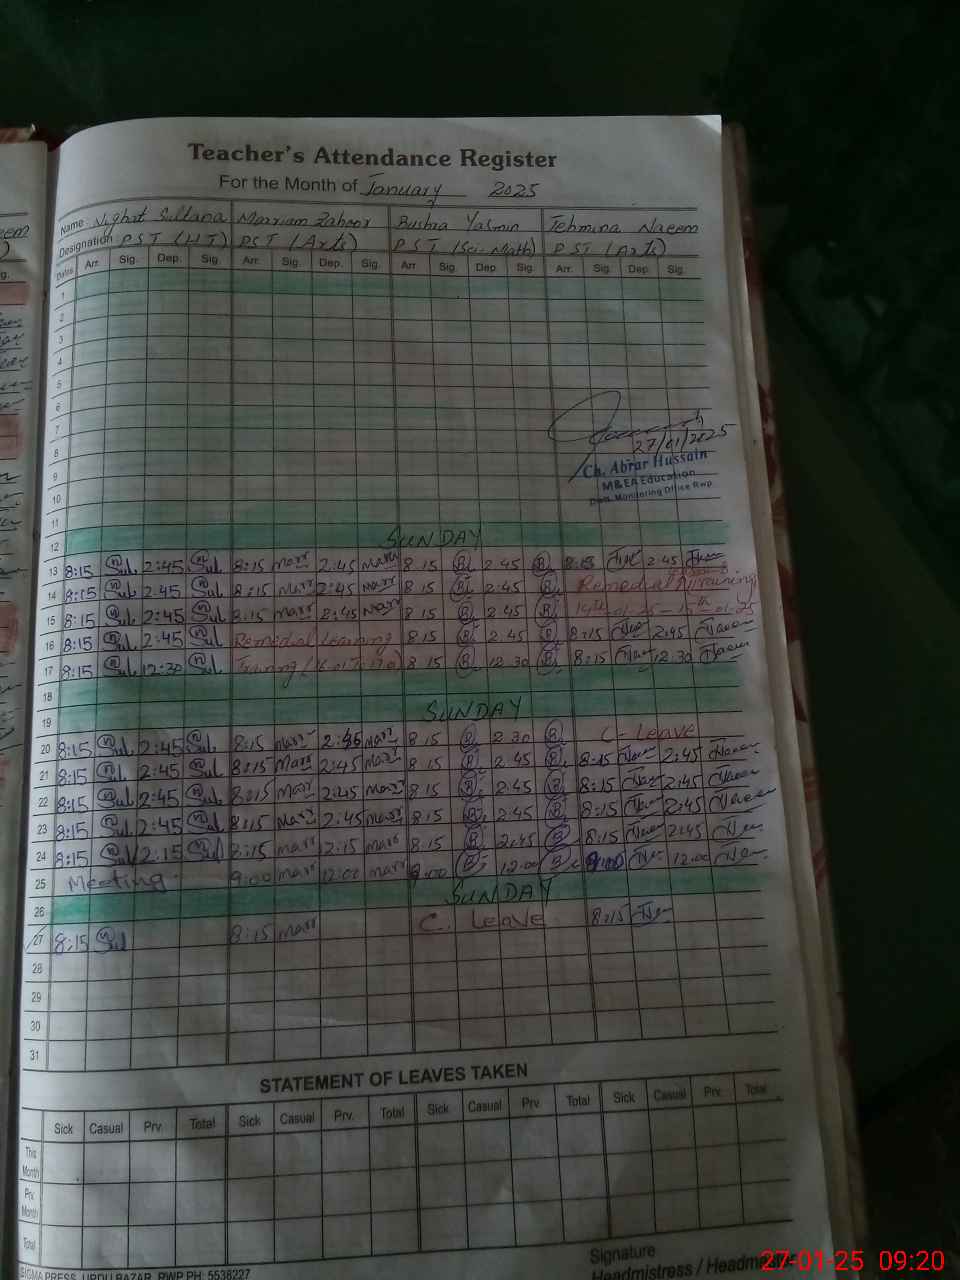 Teacher's Attendance Register
For the Month of January 2025
Name Nighat Sultana Marriam Zahoor Bushra Yasmin Tehmina Naeem
Designation PST (HT) PST (Arts) PST (Sci-Math) PST (Arts)
Dates Arr. Sig. Dep. Sig. Arr. Sig. Dep. Sig. Arr. Sig. Dep. Sig. Arr. Sig. Dep. Sig.
1
2
3
4
5
6
7
27/01/2025
8
Ch. Abrar Hussain
9
M&EA Education
10
Distt. Monitoring Office Rwp.
11
12 SUNDAY
13 8:15 Sul 2:45 Sul 8:15 marr 2:45 marr 8 15 B 2 45 B 8:15 2 45
14 8:15 Sul 2:45 Sul 8:15 marr 2:45 marr 8 15 B 2:45 B Remedial Training
15 8:15 Sul 2:45 Sul 8:15 marr 2:45 marr 8 15 B 2 45 B 14th-01-25 - 15th-01-25
16 8:15 Sul 2:45 Sul Remedial Learning 8 15 B 2 45 B 8:15 2:45
17 8:15 Sul 12:30 Sul Training 8 15 B 12 30 B 8:15 12:30
18
19 SUNDAY
20 8:15 Sul 2:45 Sul 8:15 marr 2:45 marr 8 15 B 2 30 B C-Leave
21 8:15 Sul 2:45 Sul 8:15 marr 2:45 marr 8 15 B 2:45 B 8:15 2:45
22 8:15 Sul 2:45 Sul 8:15 marr 2:45 marr 8 15 B 2:45 B 8:15 2:45
23 8:15 Sul 2:45 Sul 8:15 marr 2:45 marr 8:15 B 2:45 B 8:15 2:45
24 8:15 Sul 12:15 Sul 8:15 marr 12:15 marr 8:15 B 2:45 B 8:15 2:45
25 Meeting 9:00 marr 12:00 marr 9:00 B 12:00 B 9:00 12:00
26 SUNDAY
27 8:15 Sul 8:15 marr C. Leave 8:15
28
29
30
31
STATEMENT OF LEAVES TAKEN
Sick Casual Prv. Total Sick Casual Prv. Total Sick Casual Prv. Total Sick Casual Prv. Total
This Month
Prv. Month
Total
Signature
Headmistress / Headmaster
SIGMA PRESS, URDU BAZAR, RWP PH: 5538227
27-01-25 09:20